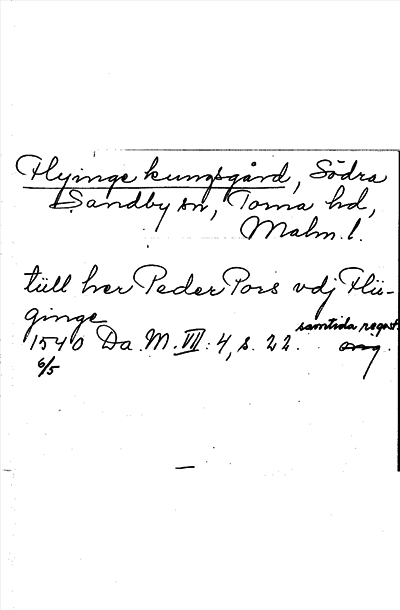 Flyinge kungsgård, Södra
Sandby sn, Torna hd,
Malm. l.
tüll her Peder Pors vdj Flü-
ginge
samtida regest.
1540 Da. M. VII: 4, s. 22. orig
6/5